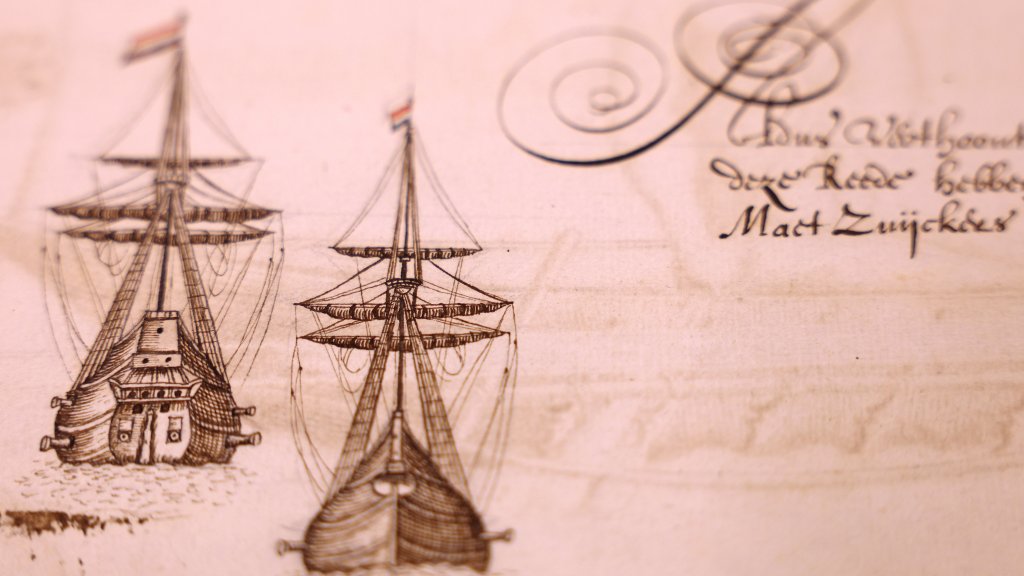 Aldus Verthoont
deze Reede hebbe
Maet Zuijckers